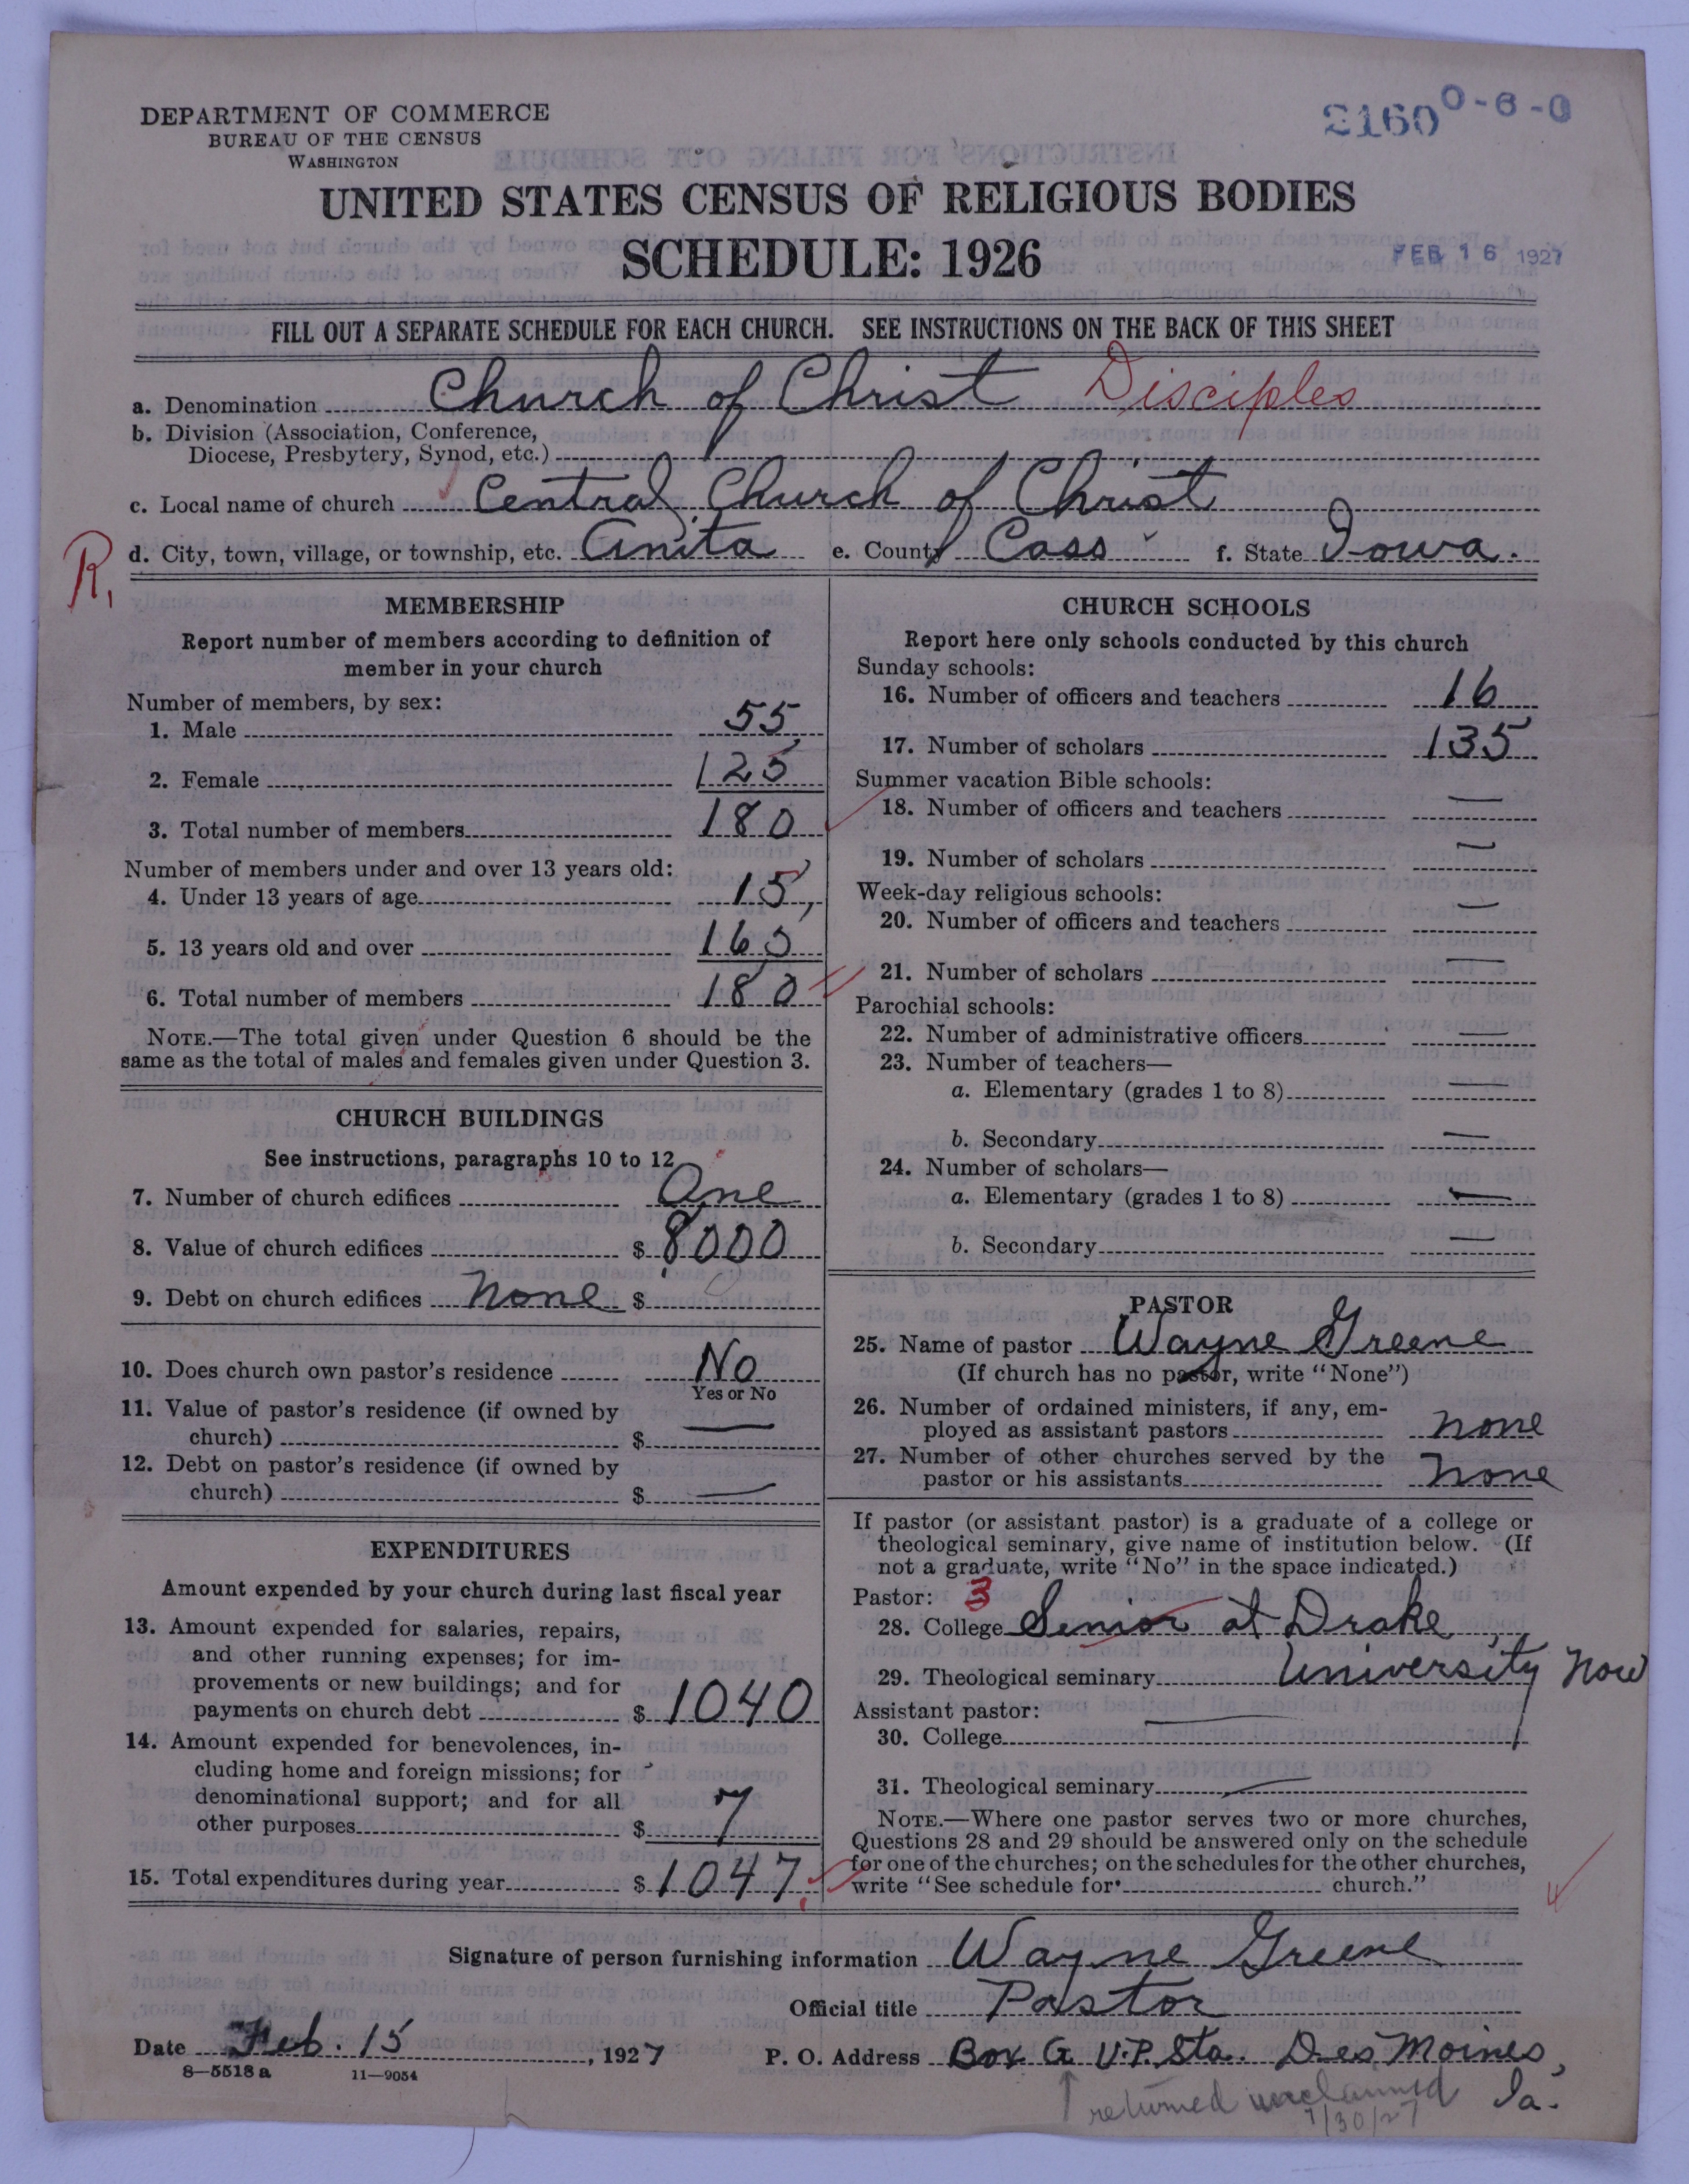 DEPARTMENT OF COMMERCE
BUREAU OF THE CENSUS
WASHINGTON
2160 0-6-0
UNITED STATES CENSUS OF RELIGIOUS BODIES
SCHEDULE: 1926
FEB 16 1927
FILL OUT A SEPARATE SCHEDULE FOR EACH CHURCH. SEE INSTRUCTIONS ON THE BACK OF THIS SHEET
a. Denomination Church of Christ Disciples
b. Division (Association, Conference,
Diocese, Presbytery, Synod, etc.)
c. Local name of church Central Church of Christ
R, d. City, town, village, or township, etc. Anita e. County Cass f. State Iowa.
MEMBERSHIP
Report number of members according to definition of
member in your church
Number of members, by sex:
1. Male 55
2. Female 125
3. Total number of members 180
Number of members under and over 13 years old:
4. Under 13 years of age 15
5. 13 years old and over 165
6. Total number of members 180
NOTE.—The total given under Question 6 should be the
same as the total of males and females given under Question 3.
CHURCH BUILDINGS
See instructions, paragraphs 10 to 12
7. Number of church edifices One
8. Value of church edifices $ 8000
9. Debt on church edifices None $
10. Does church own pastor's residence No
Yes or No
11. Value of pastor's residence (if owned by
church) $ —
12. Debt on pastor's residence (if owned by
church) $ —
EXPENDITURES
Amount expended by your church during last fiscal year
13. Amount expended for salaries, repairs,
and other running expenses; for im-
provements or new buildings; and for
payments on church debt $ 1040
14. Amount expended for benevolences, in-
cluding home and foreign missions; for
denominational support; and for all
other purposes $ 7
15. Total expenditures during year $ 1047
CHURCH SCHOOLS
Report here only schools conducted by this church
Sunday schools:
16. Number of officers and teachers 16
17. Number of scholars 135
Summer vacation Bible schools:
18. Number of officers and teachers —
19. Number of scholars —
Week-day religious schools:
20. Number of officers and teachers —
21. Number of scholars —
Parochial schools:
22. Number of administrative officers —
23. Number of teachers—
a. Elementary (grades 1 to 8) —
b. Secondary —
24. Number of scholars—
a. Elementary (grades 1 to 8) —
b. Secondary —
PASTOR
25. Name of pastor Wayne Greene
(If church has no pastor, write "None")
26. Number of ordained ministers, if any, em-
ployed as assistant pastors none
27. Number of other churches served by the
pastor or his assistants none
If pastor (or assistant pastor) is a graduate of a college or
theological seminary, give name of institution below. (If
not a graduate, write "No" in the space indicated.)
Pastor: 3
28. College Senior at Drake
29. Theological seminary University now
Assistant pastor:
30. College —
31. Theological seminary —
NOTE.—Where one pastor serves two or more churches,
Questions 28 and 29 should be answered only on the schedule
for one of the churches; on the schedules for the other churches,
write "See schedule for church."
Signature of person furnishing information Wayne Greene
Official title Pastor
Date Feb. 15, 1927 P. O. Address Box G U.P. Sta. Des Moines,
Ia.
8—5518 a 11—9054
returned unclaimed
7/30/27